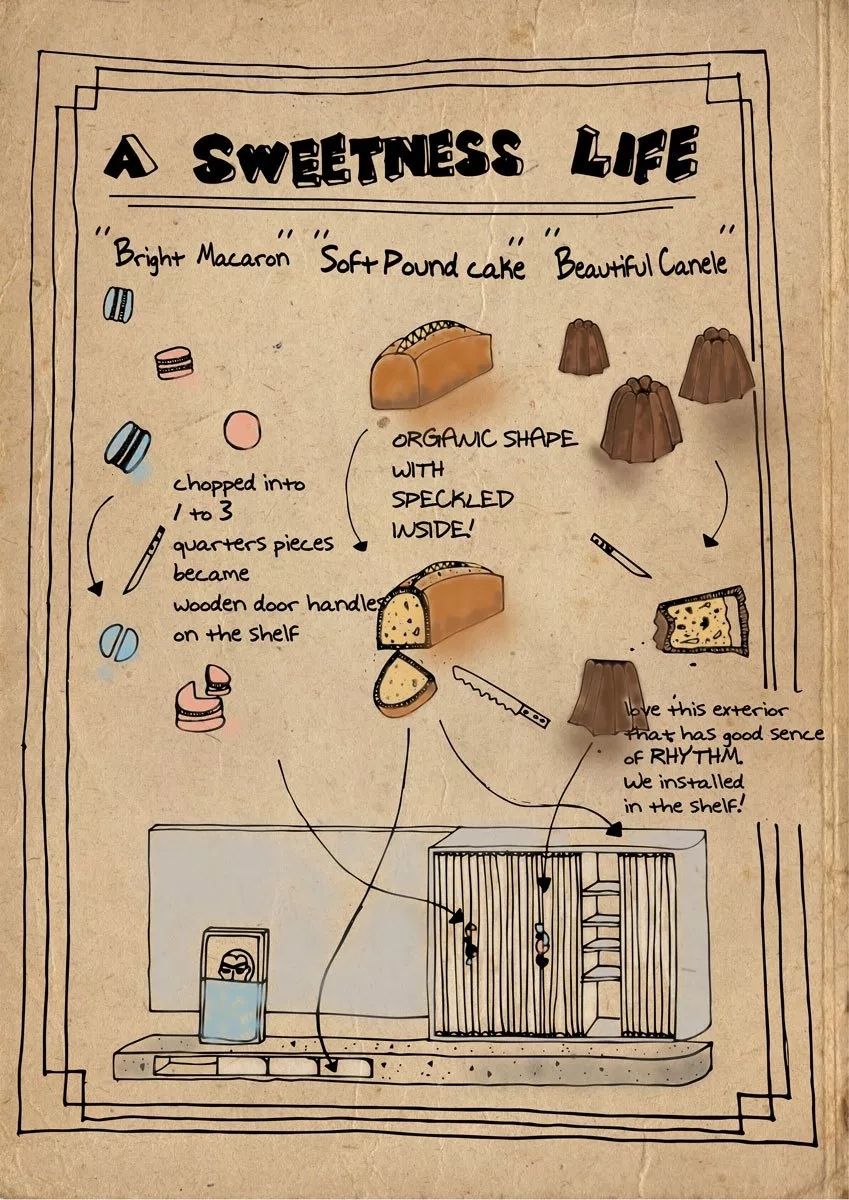 A SWEETNESS LIFE
"Bright Macaron" "Soft Pound cake" "Beautiful Canele"
chopped into
1 to 3
quarters pieces
became
wooden door handles
on the shelf
ORGANIC SHAPE
WITH
SPECKLED
INSIDE!
love this exterior
that has good sence
of RHYTHM.
We installed
in the shelf!